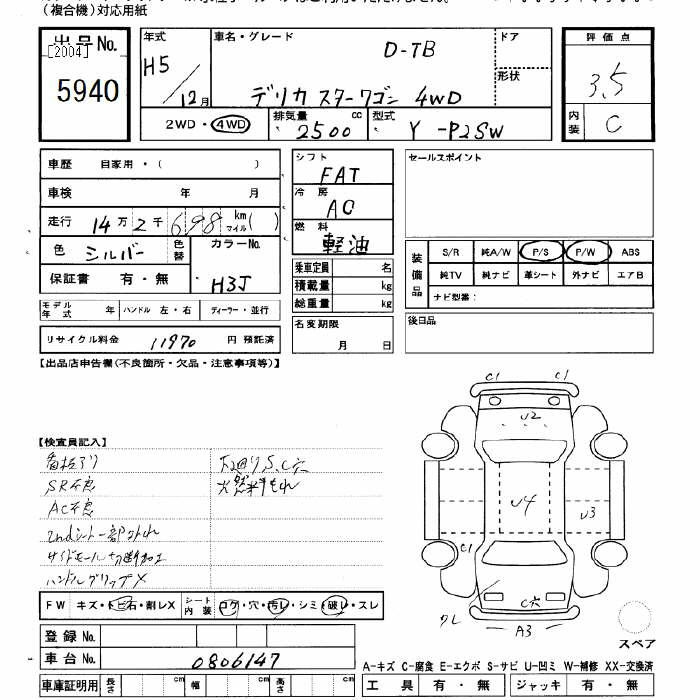 (複合機)対応用紙
出品No.
[2004]
5940
年式
H5
12月
車名・グレード
D-TB
デリカ スターワゴン 4WD
ドア
形状
2WD・4WD
排気量 2500 cc
型式 Y-P25W
評価点
3.5
内装
C
車歴 自家用・( )
車検 年 月
走行 14万2千698 km マイル( )
色 シルバー 色替
カラーNo.
H3J
保証書 有・無
モデル年式 年 ハンドル 左・右 ディーラー・並行
リサイクル料金 11970 円 預託済
シフト
FAT
冷房
AC
燃料
軽油
乗車定員 名
積載量 kg
総重量 kg
名変期限
月 日
セールスポイント
装備品
S/R 純A/W P/S P/W ABS
純TV 純ナビ 革シート 外ナビ エアB
ナビ型番:
後日品
【出品店申告欄(不良箇所・欠品・注意事項等)】
【検査員記入】
看板アリ
下廻りS、C穴
SR不良
AC不良
2ndシート一部
サイドモール
ハンドルグリップX
FW キズ・トビ石・割レX
シート内装 コゲ・穴・汚レ・シミ・破レ・スレ
登録No.
車台No. 0806147
車庫証明用 長さ cm 幅 cm 高さ cm
C1 C1
U2
U4
U3
C1
C穴
クレ
A3
スペア
A-キズ C-腐食 E-エクボ S-サビ U-凹ミ W-補修 XX-交換済
工具 有・無 ジャッキ 有・無